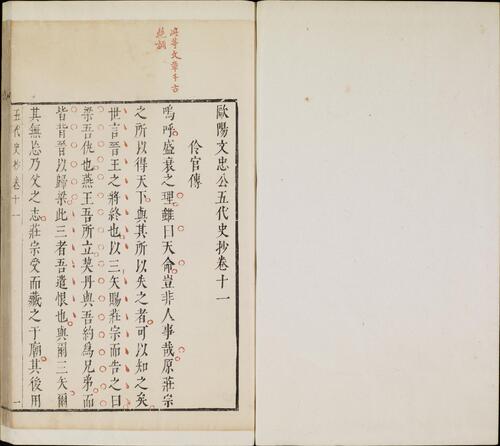 歐陽文忠公五代史抄卷十一
伶官傳
嗚呼盛衰之理雖曰天命豈非人事哉原莊宗
之所以得天下與其所以失之者可以知之矣
世言晉王之將終也以三矢賜莊宗而告之曰
梁吾仇也燕王吾所立契丹與吾約爲兄弟而
皆背晉以歸梁此三者吾遺恨也與爾三矢爾
其無忘乃父之志莊宗受而藏之于廟其後用
五代史抄卷十一
一
此等文章千古
絶調